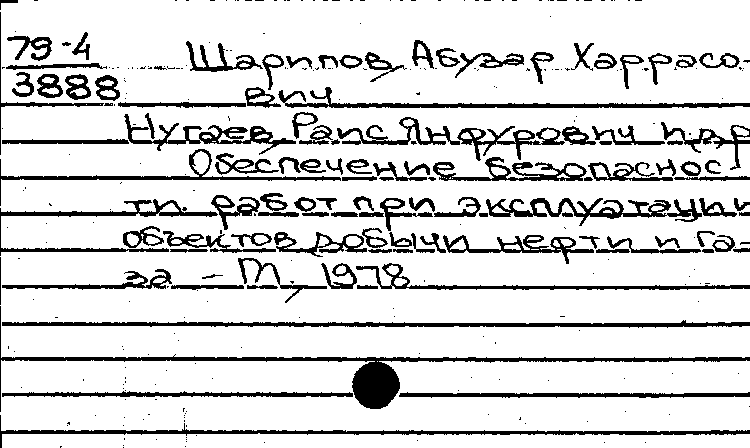 79-4
3888
Шарипов, Абузар Харрасо-
вич
Нугаев, Раис Янфурович и др
Обеспечение безопаснос-
ти работ при эксплуатации
объектов добычи нефти и га-
за - М, 1978